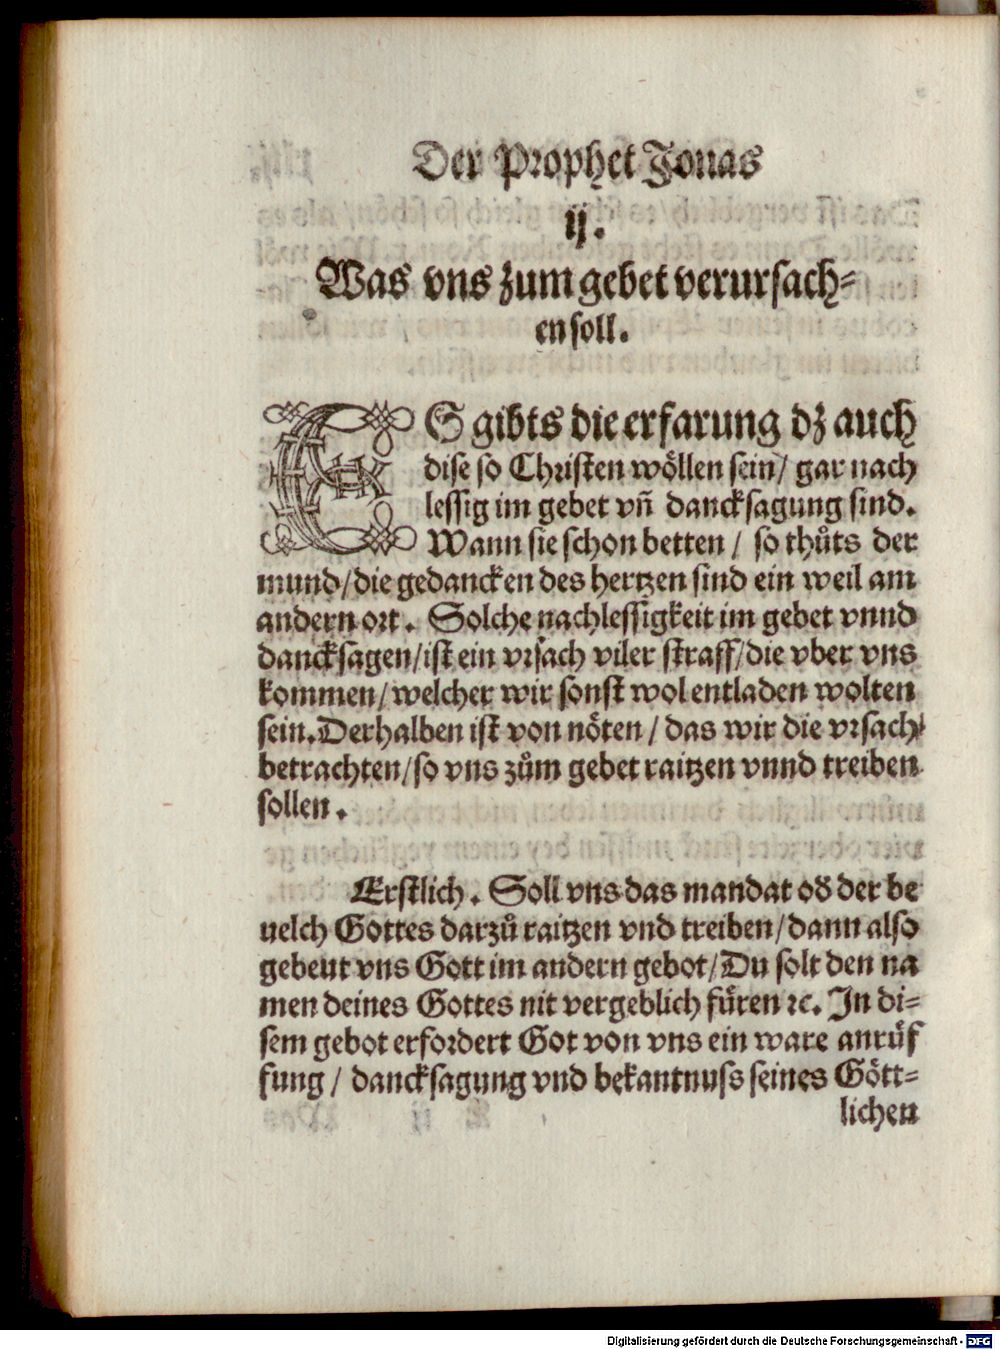 Der Prophet Jonas
ij.
Was vns zum gebet verursach-
en soll.
ES gibts die erfarung dz auch
dise so Christen wöllen sein/ gar nach
lessig im gebet vñ dancksagung sind.
Wann sie schon betten/ so thůts der
mund/die gedancken des hertzen sind ein weil am
andern ort. Solche nachlessigkeit im gebet vnnd
dancksagen/ist ein vrsach viler straff/die vber vns
kommen/welcher wir sonst wol entladen wolten
sein. Derhalben ist von nöten/das wir die vrsach
betrachten/so vns zům gebet raitzen vnnd treiben
sollen.
Erstlich. Soll vns das mandat oď der be
uelch Gottes darzů raitzen vnd treiben/dann also
gebeut vns Gott im andern gebot/Du solt den na
men deines Gottes nit vergeblich füren ꝛc. In di-
sem gebot erfordert Got von vns ein ware anrüf
fung/ dancksagung vnd bekantnuss seines Gött-
lichen
Digitalisierung gefördert durch die Deutsche Forschungsgemeinschaft - DFG